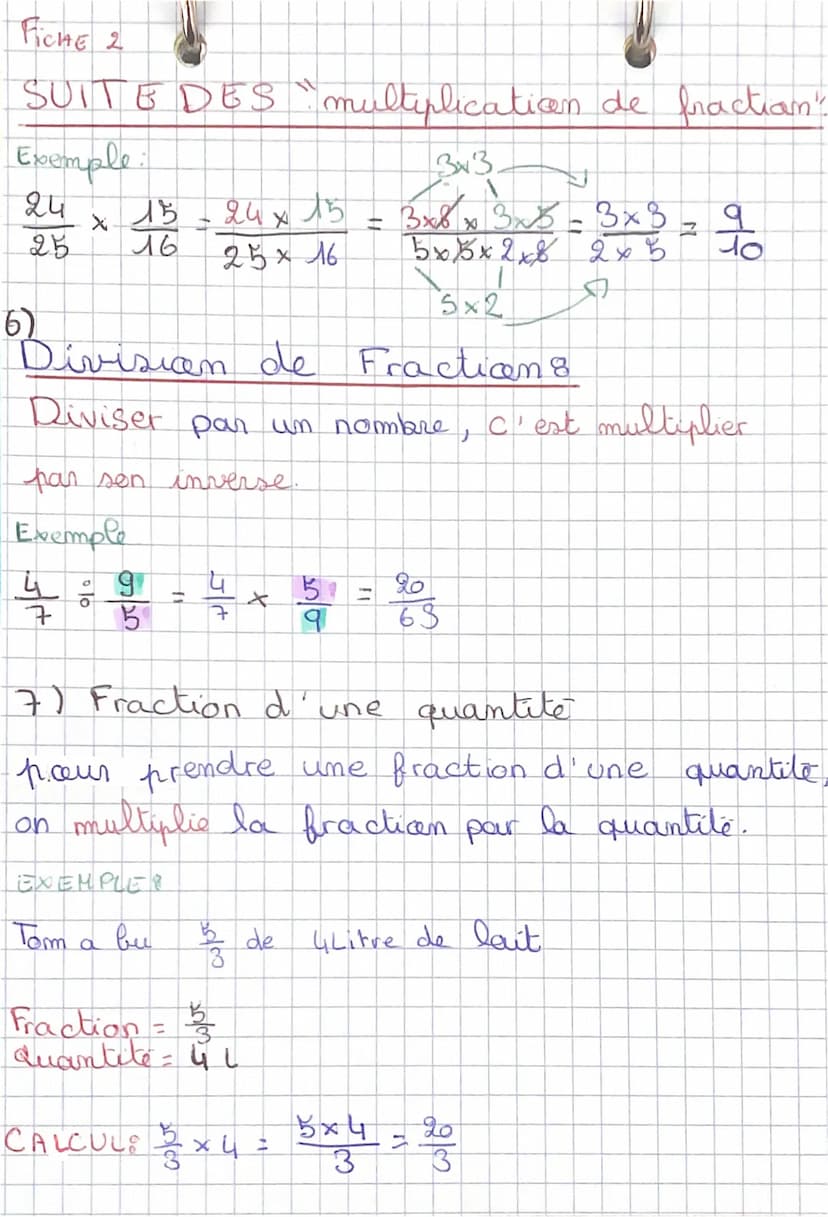 FICHE 2
SUITE DES "multiplication de fraction".
Exemple:
3x3
24/25 × 15/16 = 24 × 15 / 25 × 16 = 3×8 × 3×5 / 5×5×2×8 = 3×3 / 2×5 = 9/10
5×2
6)
Division de Fraction :
Diviser par un nombre, c'est multiplier
par son inverse.
Exemple
4/7 ÷ 9/5 = 4/7 × 5/9 = 20/63
7) Fraction d'une quantité
pour prendre une fraction d'une quantité,
on multiplie la fraction par la quantité.
EXEMPLE :
Tom a bu 5/3 de 4Litre de lait
Fraction = 5/3
Quantité = 4 L
CALCUL: 5/3 × 4 = 5×4 / 3 = 20/3